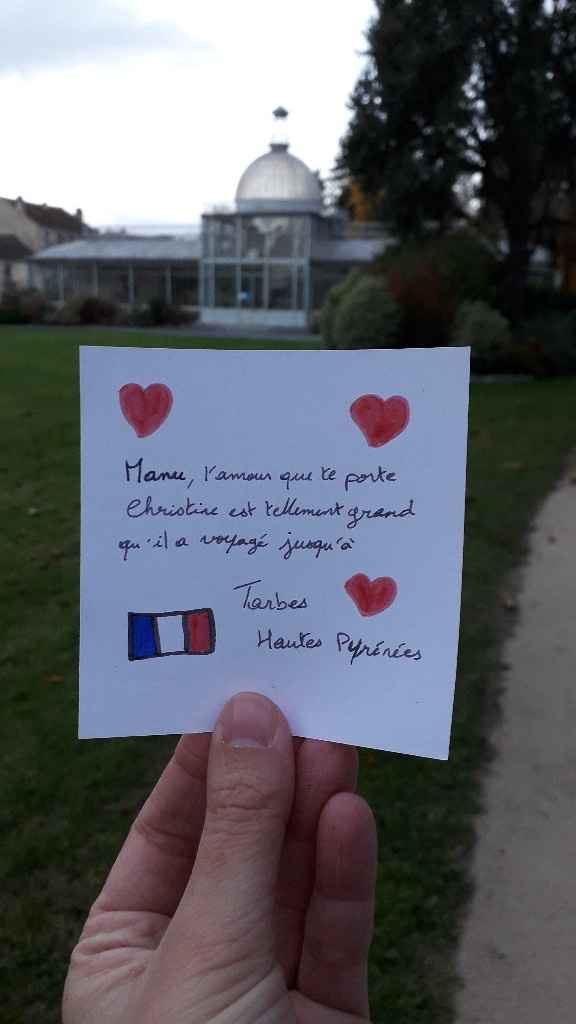 Manu, l'amour que te porte
Christine est tellement grand
qu'il a voyagé jusqu'à
Tarbes
Hautes Pyrénées